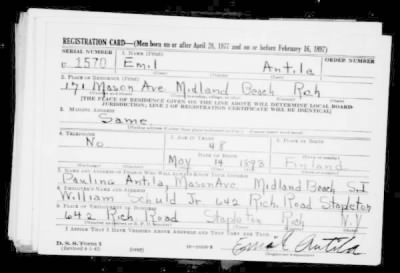 REGISTRATION CARD—(Men born on or after April 28, 1877 and on or before February 16, 1897)
SERIAL NUMBER 1. NAME (Print) ORDER NUMBER
U 1570 Emil Antila
2. PLACE OF RESIDENCE (Print)
171 Mason Ave Midland Beach Rch
[THE PLACE OF RESIDENCE GIVEN ON THE LINE ABOVE WILL DETERMINE LOCAL BOARD
JURISDICTION; LINE 2 OF REGISTRATION CERTIFICATE WILL BE IDENTICAL]
3. MAILING ADDRESS
Same
4. TELEPHONE 5. AGE IN YEARS 6. PLACE OF BIRTH
No 48
DATE OF BIRTH
May 14 1893 Finland
7. NAME AND ADDRESS OF PERSON WHO WILL ALWAYS KNOW YOUR ADDRESS
Pauline Antila, Mason Ave Midland Beach S.I
8. EMPLOYER'S NAME AND ADDRESS
William Schuld Jr 642 Rich. Road Stapleton
9. PLACE OF EMPLOYMENT OR BUSINESS
642 Rich. Road Stapleton Rch N.Y
I AFFIRM THAT I HAVE VERIFIED ABOVE ANSWERS AND THAT THEY ARE TRUE.
D. S. S. Form 1
Emil Antila